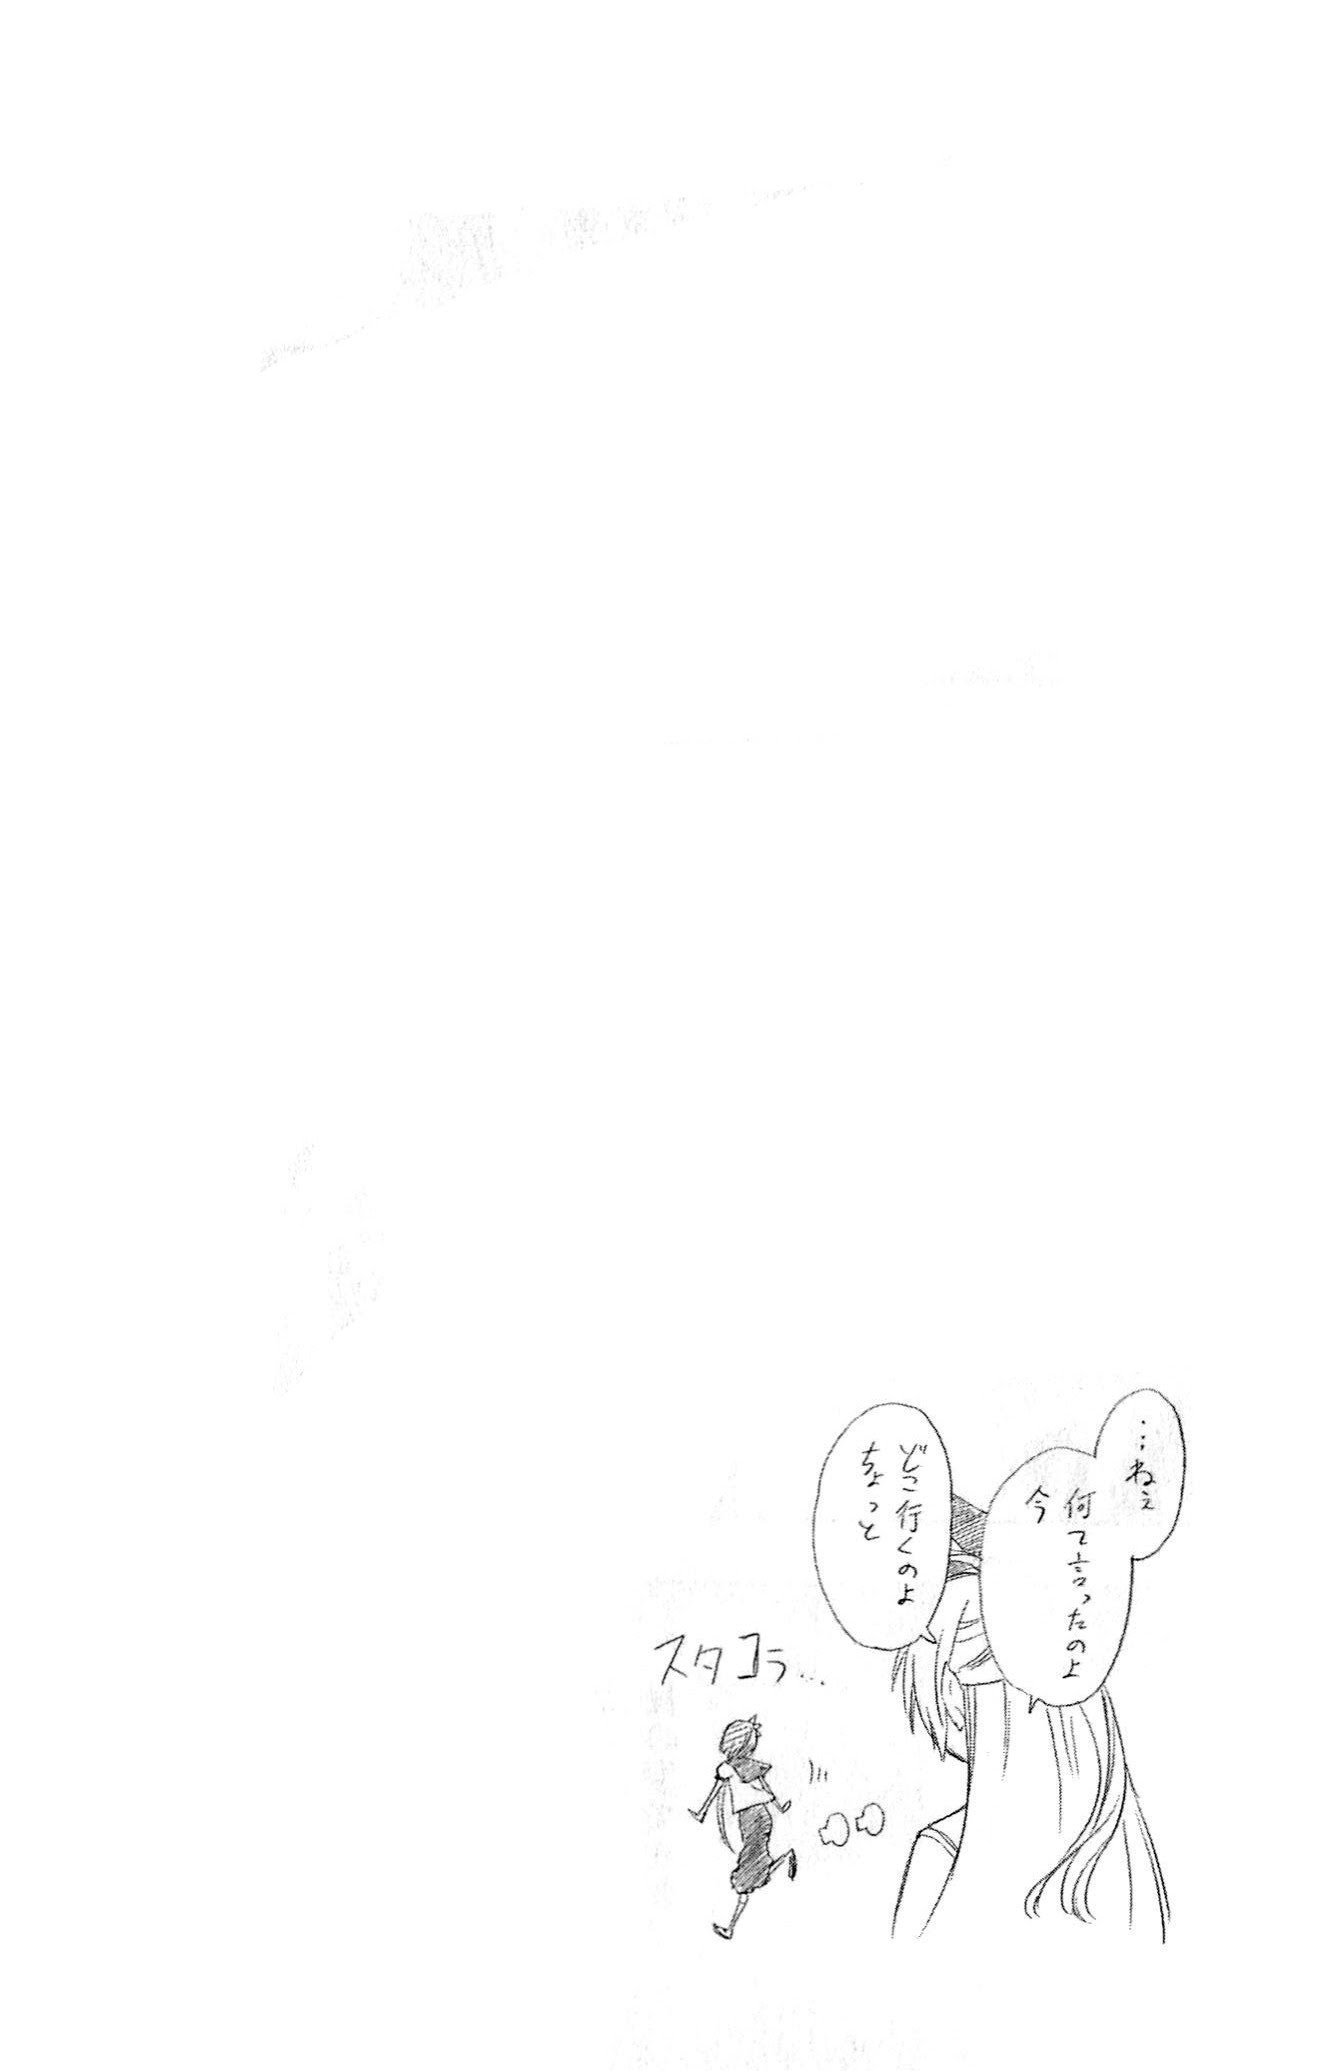 …ねぇ
今
何て言ったのよ
ちょっと
どこ行くのよ
スタコラ…